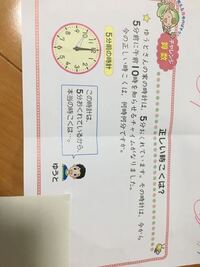 チャレンジ
算数
正しい時こくは？
ゆうとさんの家の時計は、5分おくれています。その時計は、今から
5分前に午前10時を知らせるチャイムがなりました。
今の正しい時こくは、何時何分ですか。
5分前の時計
この時計は、
5分おくれているから、
本当の時こくは…。
ゆうと